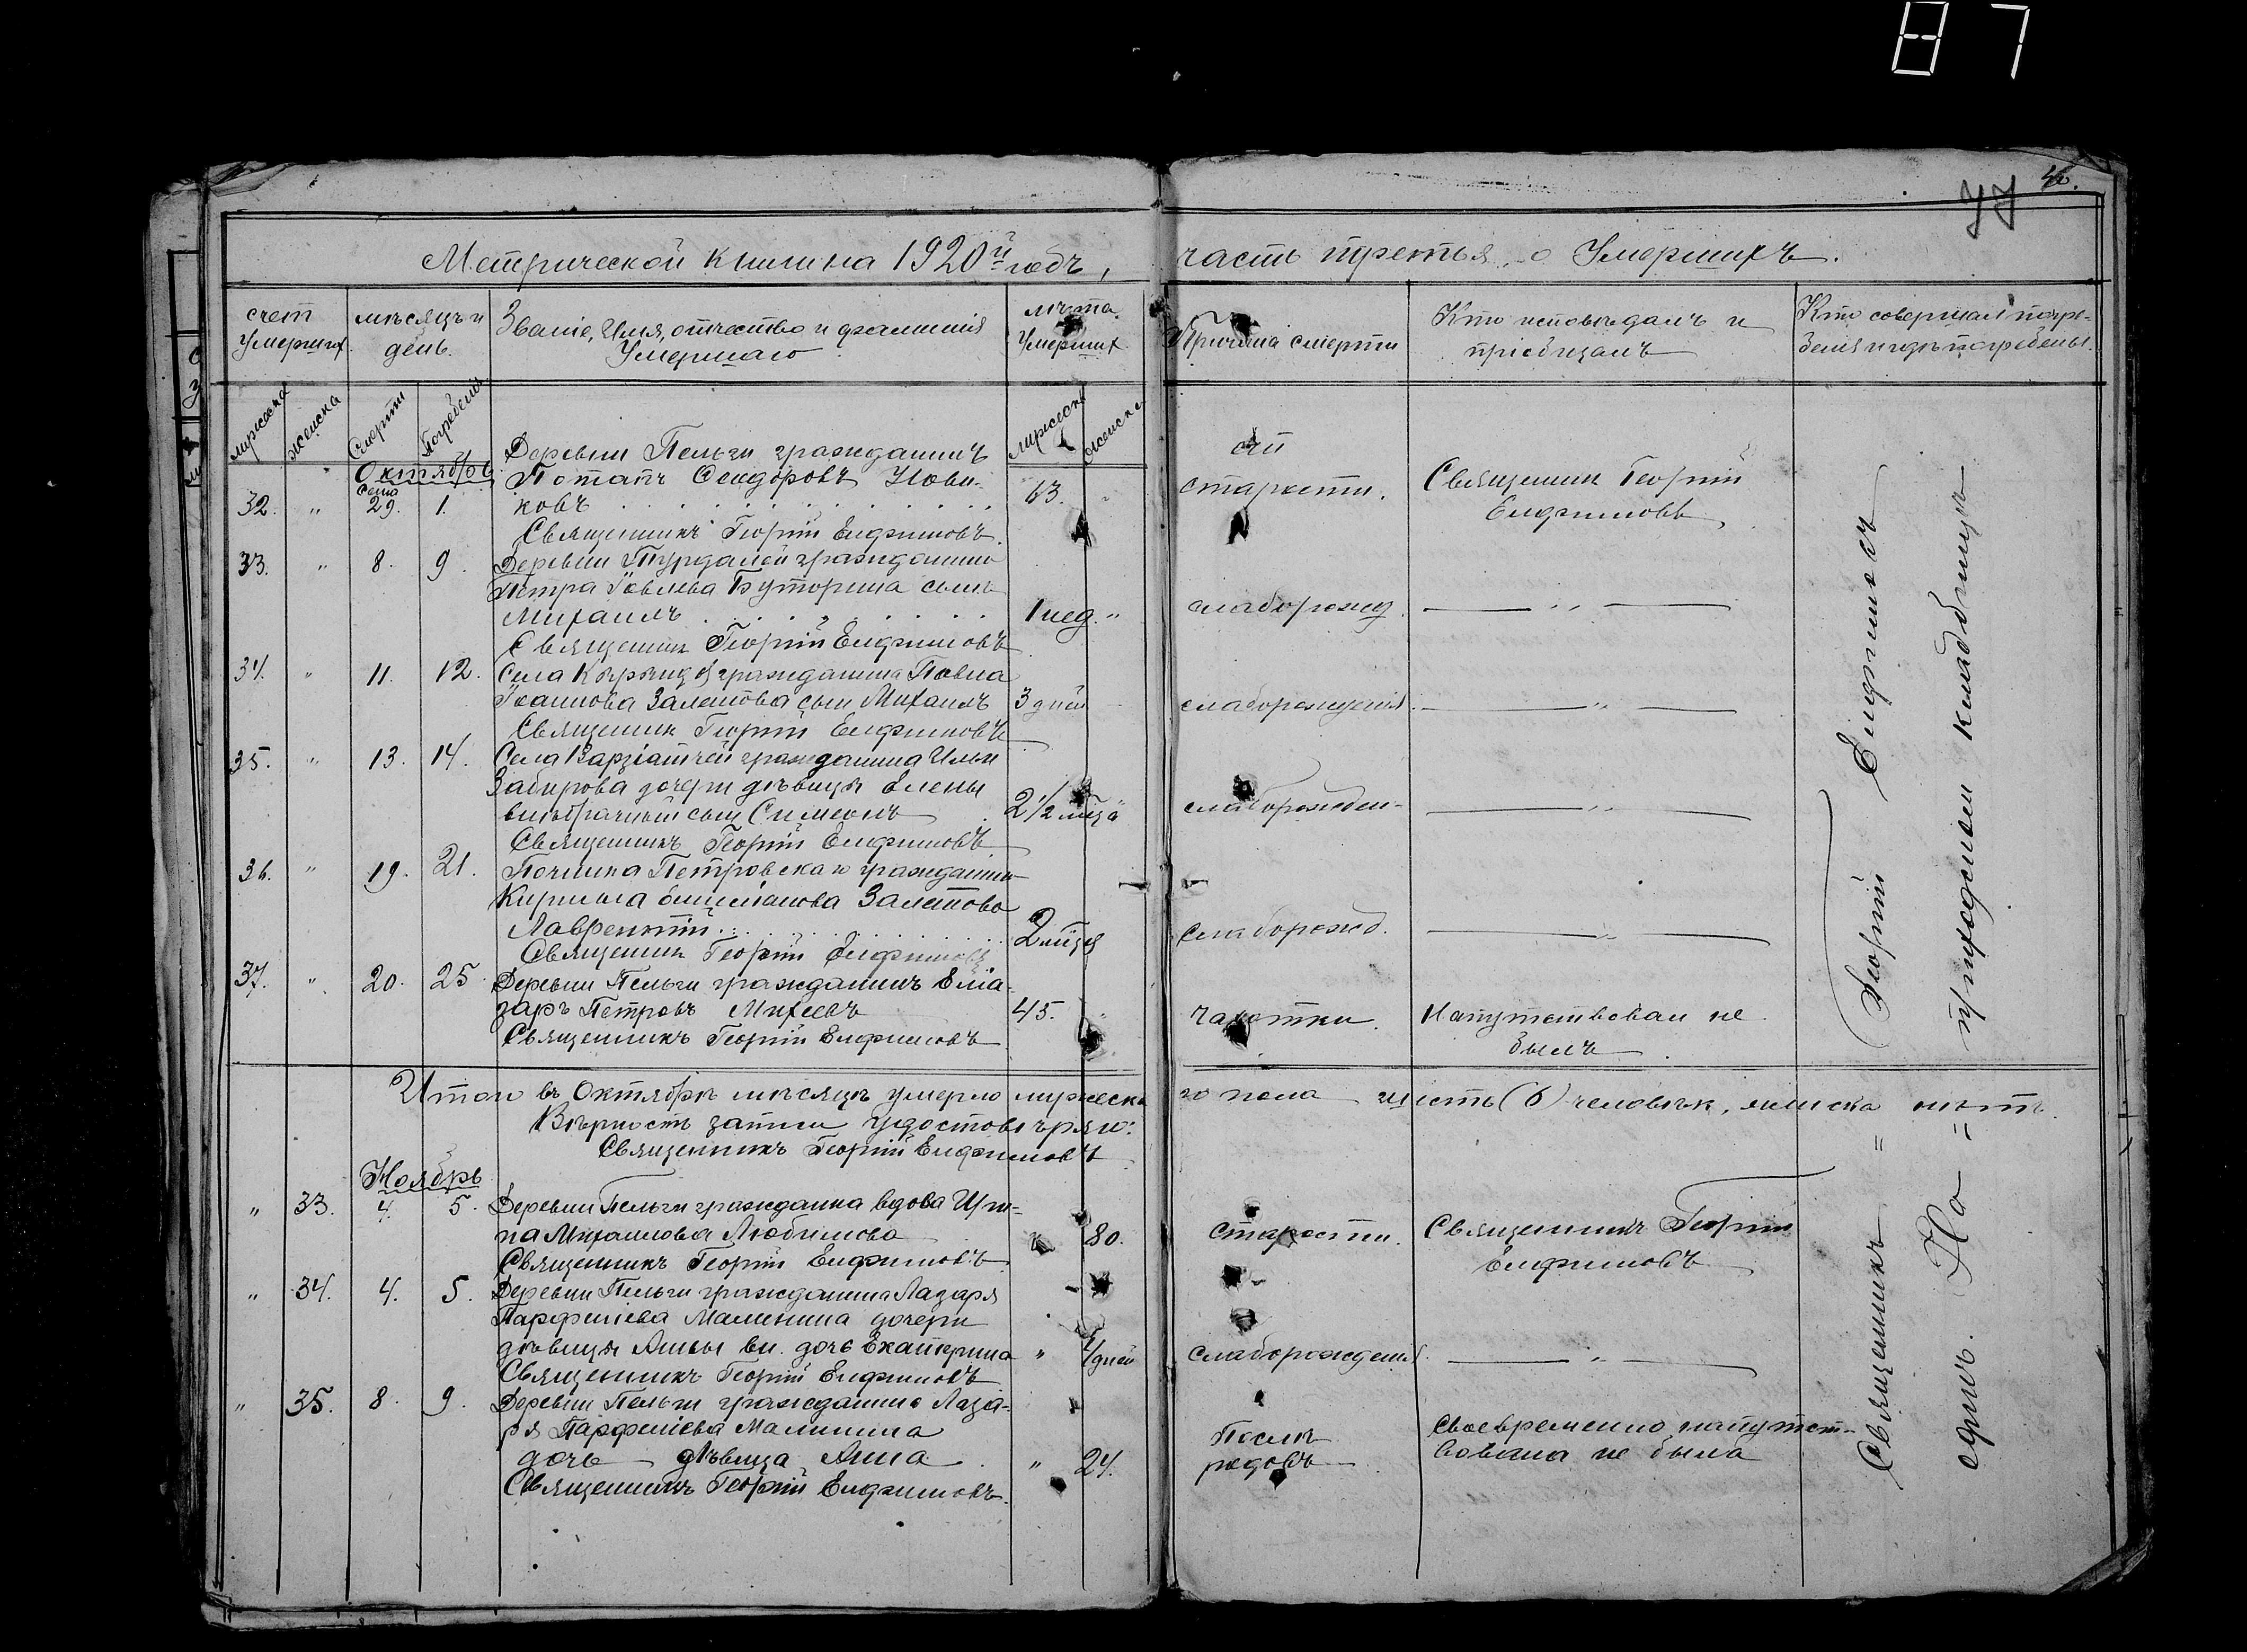 87
Метрической книги на 1920й годъ, часть третья, о Умершихъ.
счет Умерших.
мѣсяцъ и день.
Званіе, Имя, отчество и фамилія Умершаго
лѣта Умерших
Причина смерти
Кто исповѣдалъ и пріобщалъ
Кто совершал погребенія и гдѣ погребены.
мужеска
женска
Смерти
Погребенія
мужеска
женска
Октябрь
Деревни Пельги гражданинъ
Потапъ Сидоровъ Нови-
32. " 29. 1. ковъ 63. старости. Священник Георгій
Елфимовъ
Священникъ Георгій Елфимовъ.
33. " 8. 9. Деревни гражданина
Петра Іовлева Буторина сынъ
Михаилъ 1 нед. " слаборожд. — " —
Священник Георгій Елфимовъ
34. " 11. 12. Села гражданина Павла
Іоаннова сын Михаилъ 3 дней слаборожденія. — " —
Священник Георгій Елфимовъ
35. " 13. 14. Села Варзіатчей гражданина Ильи
Забирова дочери дѣвицы Елены
внѣбрачный сын Симеонъ 2 1/2 мѣца слаборожден- — " —
Священникъ Георгій Елфимовъ
36. " 19. 21. Починка Петровскаго гражданина
Кирилла
Лаврентій 2 мѣця слаборожд. — " —
Священник Георгій Елфимовъ
37. " 20. 25. Деревни Пельги гражданинъ Елиа-
заръ Петровъ Михеевъ 45. " чахотки. Напутствован не
былъ
Священникъ Георгій Елфимовъ
Итого въ Октябрѣ мѣсяцѣ умерло мужеска го пола шесть (6) человѣк, женска нѣтъ.
Вѣрность записи удостовѣряю:
Священникъ Георгій Елфимовъ
Ноябрь
" 33. 4. 5. Деревни Пельги гражданка вдова Ири-
на Михаилова Любимова 80. старости. Священникъ Георгій
Елфимовъ
Священникъ Георгій Елфимовъ
" 34. 4. 5. Деревни Пельги гражданина Лазаря
Парфеніева Малинина дочери
дѣвицы Анны вн. дочь Екатерина " дней слаборожденія. — " —
Священникъ Георгій Елфимовъ
" 35. 8. 9. Деревни Пельги гражданина Лаза-
ря Парфеніева Малинина
дочь дѣвица Анна " 24. Послѣ родовъ Своевременно напутст-
вована не была
Священникъ Георгій Елфимовъ.
Священникъ = Георгій Елфимовъ
На = приходском кладбищѣ